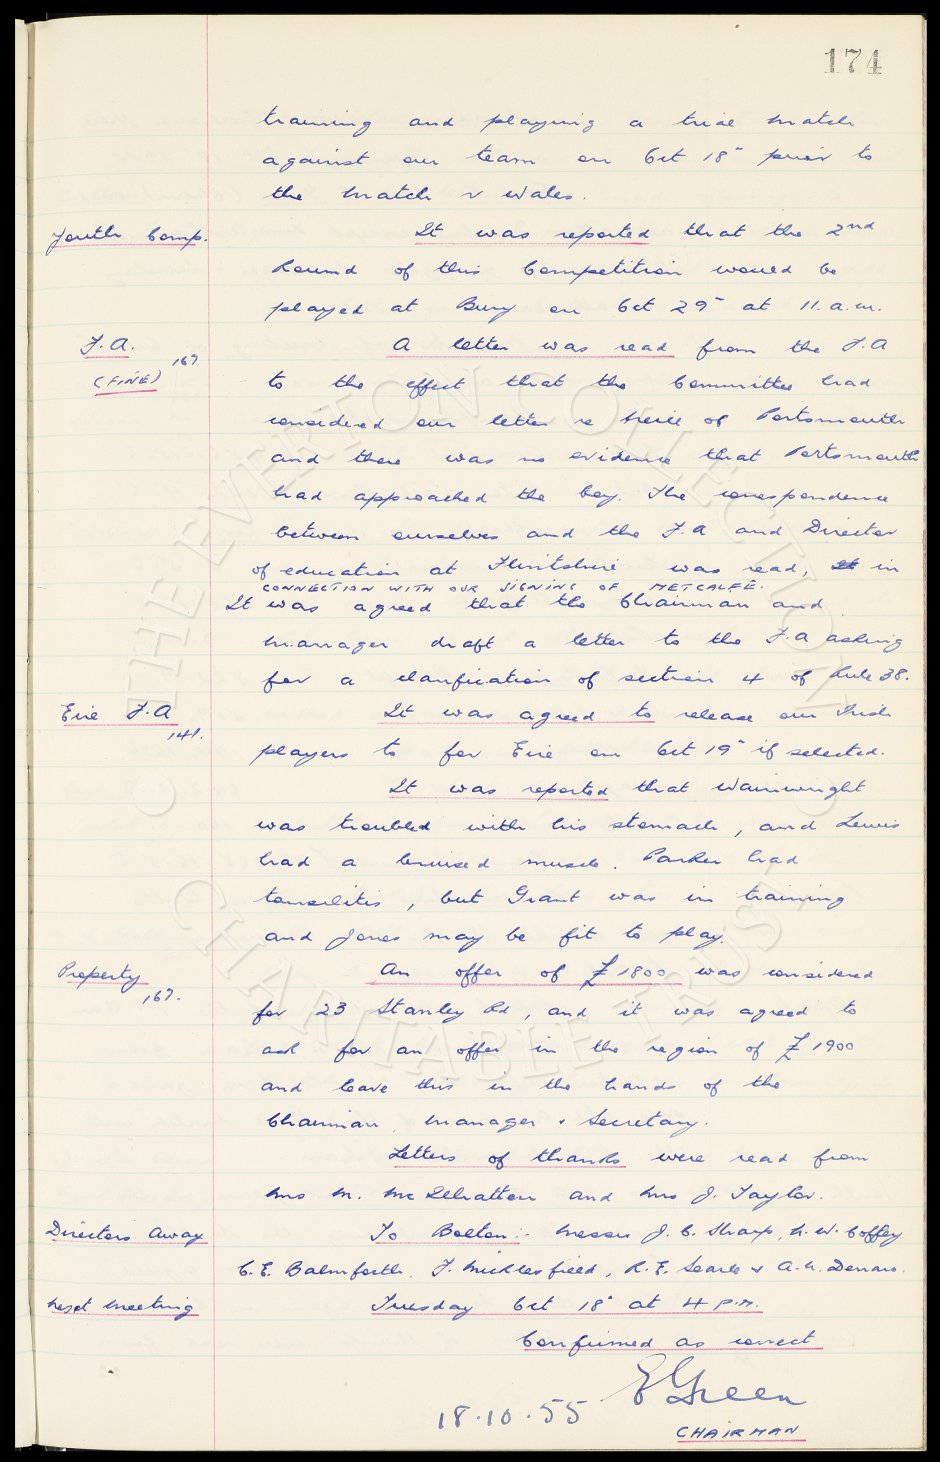 174
training and playing a trial match
against our team on Oct 18" prior to
the match v Wales.
Youth Comp. It was reported that the 2nd
Round of this Competition would be
played at Bury on Oct 29" at 11.a.m.
F.A. (FINE) 167 A letter was read from the F.A
to the effect that the Committee had
considered our letter re of Portsmouth
and there was no evidence that Portsmouth
had approached the boy. The correspondence
between ourselves and the F.A and Director
of education at Flintshire was read, in
CONNECTION WITH OUR SIGNING OF METCALFE.
It was agreed that the Chairman and
manager draft a letter to the F.A asking
for a clarification of section 4 of Rule 38.
Eire F.A 141. It was agreed to release our Irish
players to for Eire on Oct 19" if selected.
It was reported that Wainwright
was troubled with his stomach, and Lewis
had a bruised muscle. Parker had
tonsilitis, but Grant was in training
and Jones may be fit to play.
Property 167. An offer of £1800 was considered
for 23 Stanley Rd, and it was agreed to
ask for an offer in the region of £1900
and leave this in the hands of the
Chairman, manager & Secretary.
Letters of thanks were read from
Mrs M. and Mrs J. Taylor.
Directors Away To Bolton:- Messrs J.C. Sharp, N.W. Coffey
C.E. Balmforth, F. Micklesfield, R.E. Searle & A.H. Denaro.
Next Meeting Tuesday Oct 18" at 4 P.M.
Confirmed as correct
E Green
18.10.55
CHAIRMAN
© THE EVERTON COLLECTION
CHARITABLE TRUST